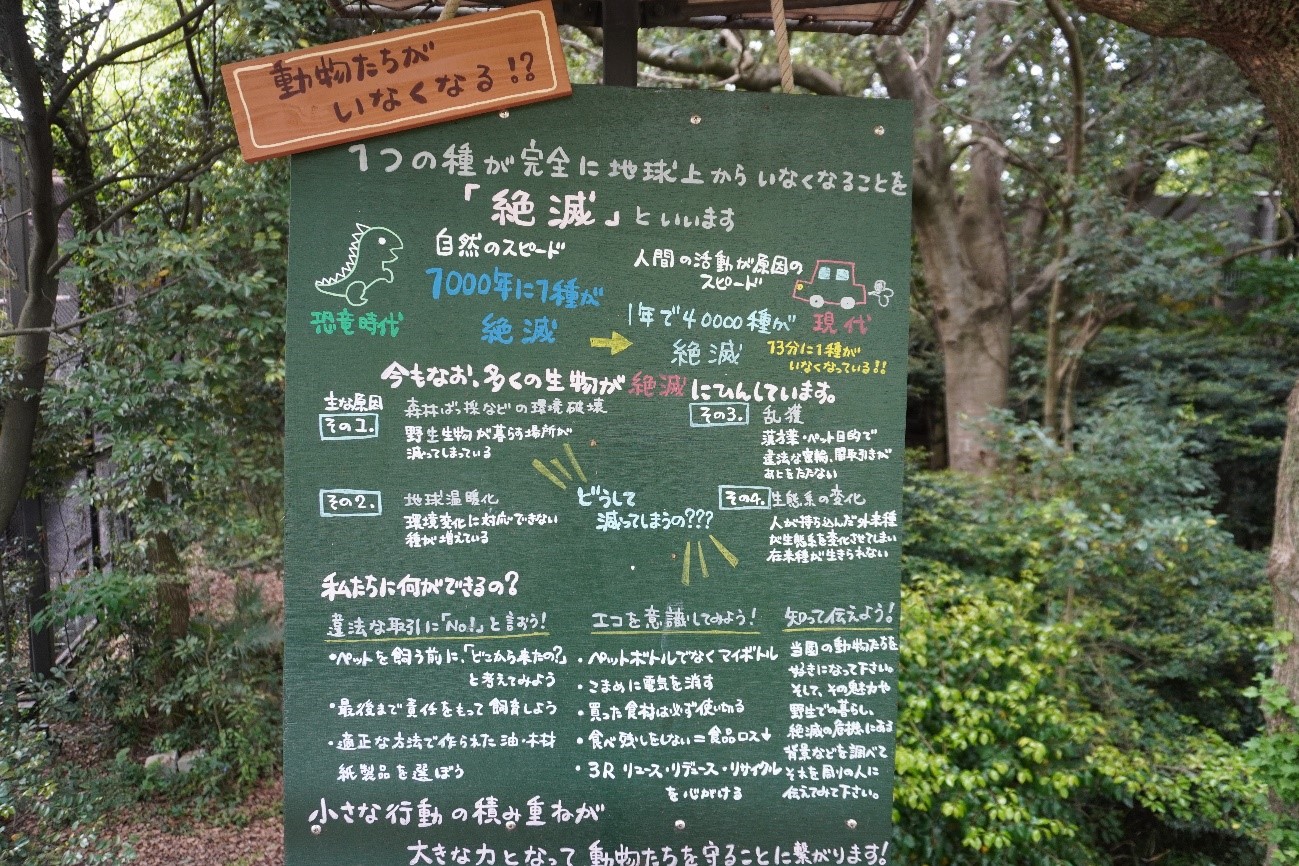 動物たちが
いなくなる!?
1つの種が完全に地球上からいなくなることを
「絶滅」といいます
自然のスピード
1000年に1種が
絶滅
恐竜時代
人間の活動が原因の
スピード
1年で40000種が
絶滅
現代
13分に1種が
いなくなっている!!
今もなお、多くの生物が絶滅にひんしています。
主な原因
その1.
森林ばっ採などの環境破壊
野生生物が暮らす場所が
減ってしまっている
その2.
地球温暖化
環境変化に対応できない
種が増えている
どうして
減ってしまうの???
その3.
乱獲
漢方薬・ペット目的で
違法な密輸、闇取引きが
あとをたたない
その4.
生態系の変化
人が持ち込んだ外来種
が生態系を変化させてしまい
在来種が生きられない
私たちに何ができるの?
違法な取引に「No!」と言おう!
・ペットを飼う前に、「どこから来たの?」
と考えてみよう
・最後まで責任をもって飼育しよう
・適正な方法で作られた油・木材
紙製品を選ぼう
エコを意識してみよう!
・ペットボトルでなくマイボトル
・こまめに電気を消す
・買った食材は必ず使い切る
・食べ残しをしない=食品ロス↓
・3R リユース・リデュース・リサイクル
を心がける
知って伝えよう!
当園の動物たちを
好きになって下さい。
そして、その魅力や
野生での暮らし、
絶滅の危機にある
背景などを調べて
それを周りの人に
伝えてみて下さい。
小さな行動の積み重ねが
大きな力となって動物たちを守ることに繋がります!